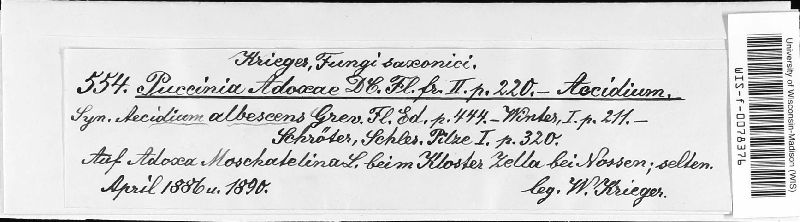 Krieger, Fungi saxonici.
554. Puccinia Adoxae DC. Fl. fr. II. p. 220. – Aecidium.
Syn. Aecidium albescens Grev. Fl. Ed. p. 444. – Winter, I. p. 211. –
Schröter, Schles. Pilze I. p. 320.
Auf Adoxa Moschatelina L. beim Kloster Zella bei Nossen; selten.
April 1886 u. 1890.
leg. W. Krieger.
University of Wisconsin-Madison (WIS)
WIS-f-0078376